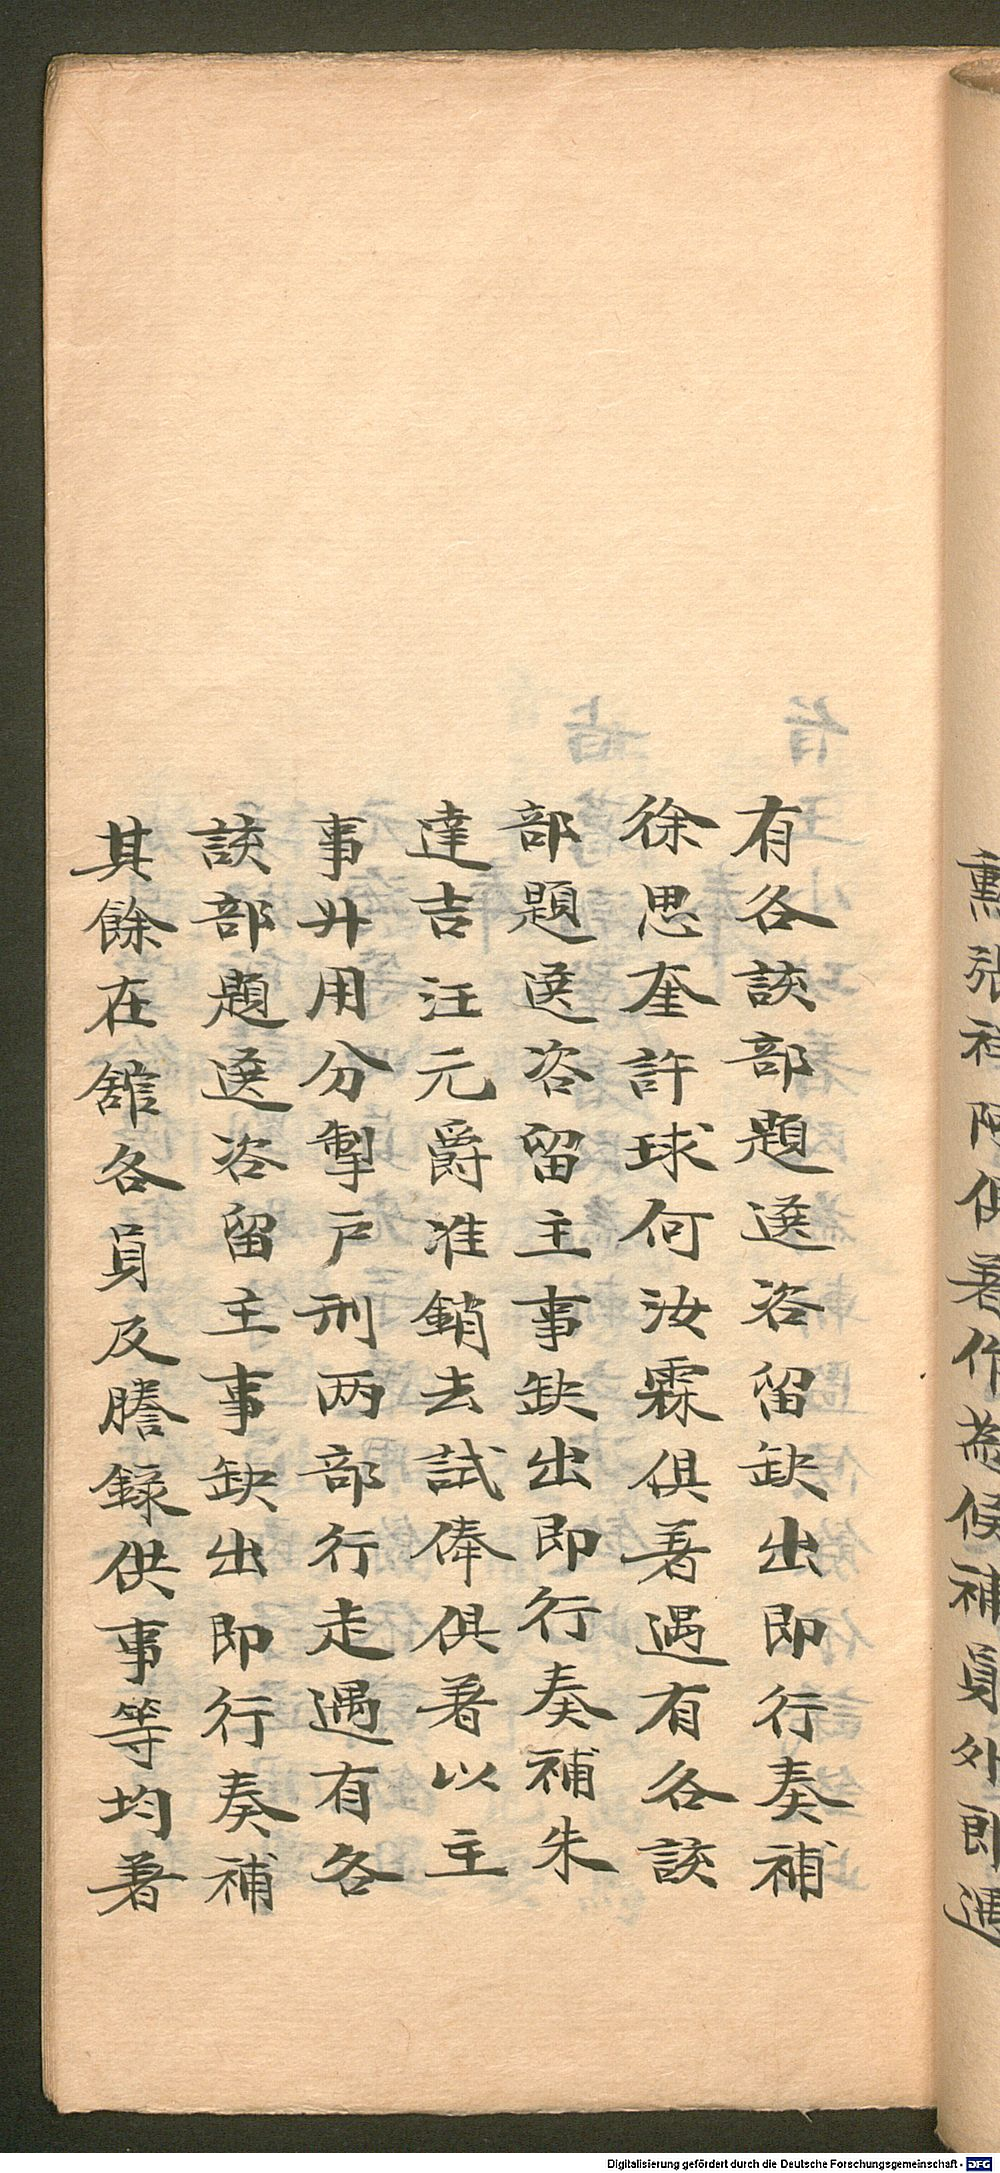 勳張祥陳侃著作為候補員外郎遇
有各該部題選咨留缺出即行奏補
徐思奎許球何汝霖俱著遇有各該
部題選咨留主事缺出即行奏補朱
達吉汪元爵准銷去試俸俱著以主
事升用分掣户刑两部行走遇有各
該部題選咨留主事缺出即行奏補
其餘在舘各員及謄録供事等均著
Digitalisierung gefördert durch die Deutsche Forschungsgemeinschaft - DFG